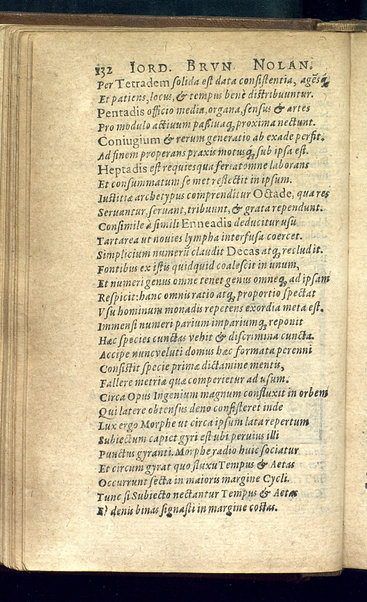 132 IORD. BRVN. NOLAN.
Per Tetradem solida est data consistentia, agẽsq́
Et patiens, locus, & tempus benè distribuuntur.
Pentadis officio media, organa, sensus & artes
Pro modulo actiuum passiuaq́, proxima nectunt.
Coniugium & rerum generatio ab exade perfit.
Ad finem properans praxis motusq́, sub ipsa est.
Heptadis est requies qua feriat omne laborans
Et consummatum se met reflectit in ipsum.
Iustitia archetypus comprenditur Octade, qua res
Seruantur, seruant, tribuunt, & grata rependunt.
Consimile à simili Enneadis deducitur vsu
Tartarea vt nouies lympha interfusa coercet.
Simplicium numerũ claudit Decas atq́, recludit.
Fontibus ex istis quidquid coalescit in vnum,
Et numeri genus omne tenet genus omneq́, ad ipsam
Respicit: hanc omni ratio atq́, proportio spectat
Vsu hominum monadis repetens exordia meta est.
Immensi numeri parium impariumq́, reponit
Hac species cunctas vehit & discrimina cuncta.
Accipe nunc veluti domus hæc formata perenni
Consistit specie prima dictamine mentis,
Fallere metria qua compertetur ad vsum.
Circa Opus Ingenium magnum confluxit in orbem
Qui latere obtensus deno consisteret inde
Lux ergo Morphe vt circa ipsum lata repertum
Subiectum capiet gyri est vbi peruius illi
Punctus gyranti. Morphe radio huic sociatur
Et circum gyrat quo fluxu Tempus & Aetas
Occurrunt secta in maioris margine Cycli.
Tunc si Subiecto nectantur Tempus & Aetas
Et denis binas signasti in margine costas.